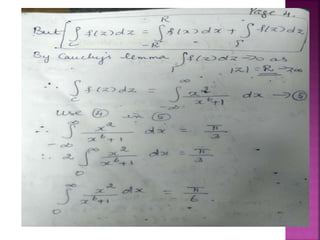 Page 4.
But ∫_C f(z)dz = ∫_{-R}^{R} f(x)dx + ∫_Γ f(z)dz
By Cauchy's lemma ∫_Γ f(z)dz → 0 as
|z| = R → ∞
∴ ∫_C f(z)dz = ∫_{-∞}^{∞} x²/(x⁶+1) dx → ⑤
Use ④ in ⑤
∴ ∫_{-∞}^{∞} x²/(x⁶+1) dx = π/3
∴ 2 ∫_0^∞ x²/(x⁶+1) dx = π/3
∫_0^∞ x²/(x⁶+1) dx = π/6